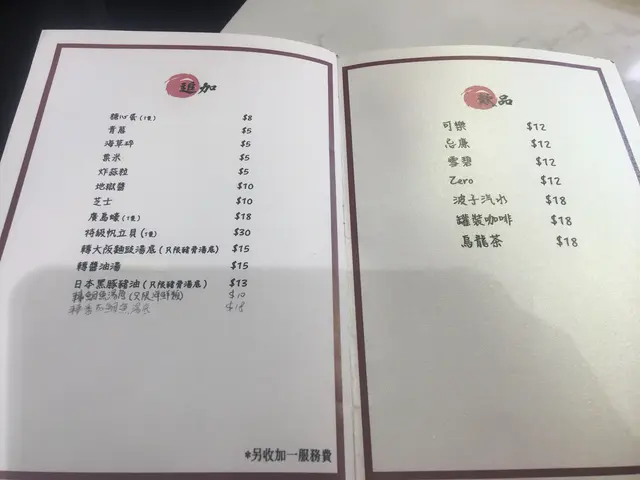 追加
糖心蛋(1隻) $8
青蔥 $5
海草碎 $5
粟米 $5
炸蒜粒 $5
地獄醬 $10
芝士 $10
廣島蠔(1隻) $18
特級帆立貝(1隻) $30
轉大阪麵豉湯底(只限豬骨湯底) $15
轉醬油湯 $15
日本黑豚豬油(只限豬骨湯底) $13
轉鯛魚湯底(只限洋蔥飯) $10
$18
*另收加一服務費
飲品
可樂 $12
忌廉 $12
雪碧 $12
Zero $12
波子汽水 $18
罐裝咖啡 $18
烏龍茶 $18